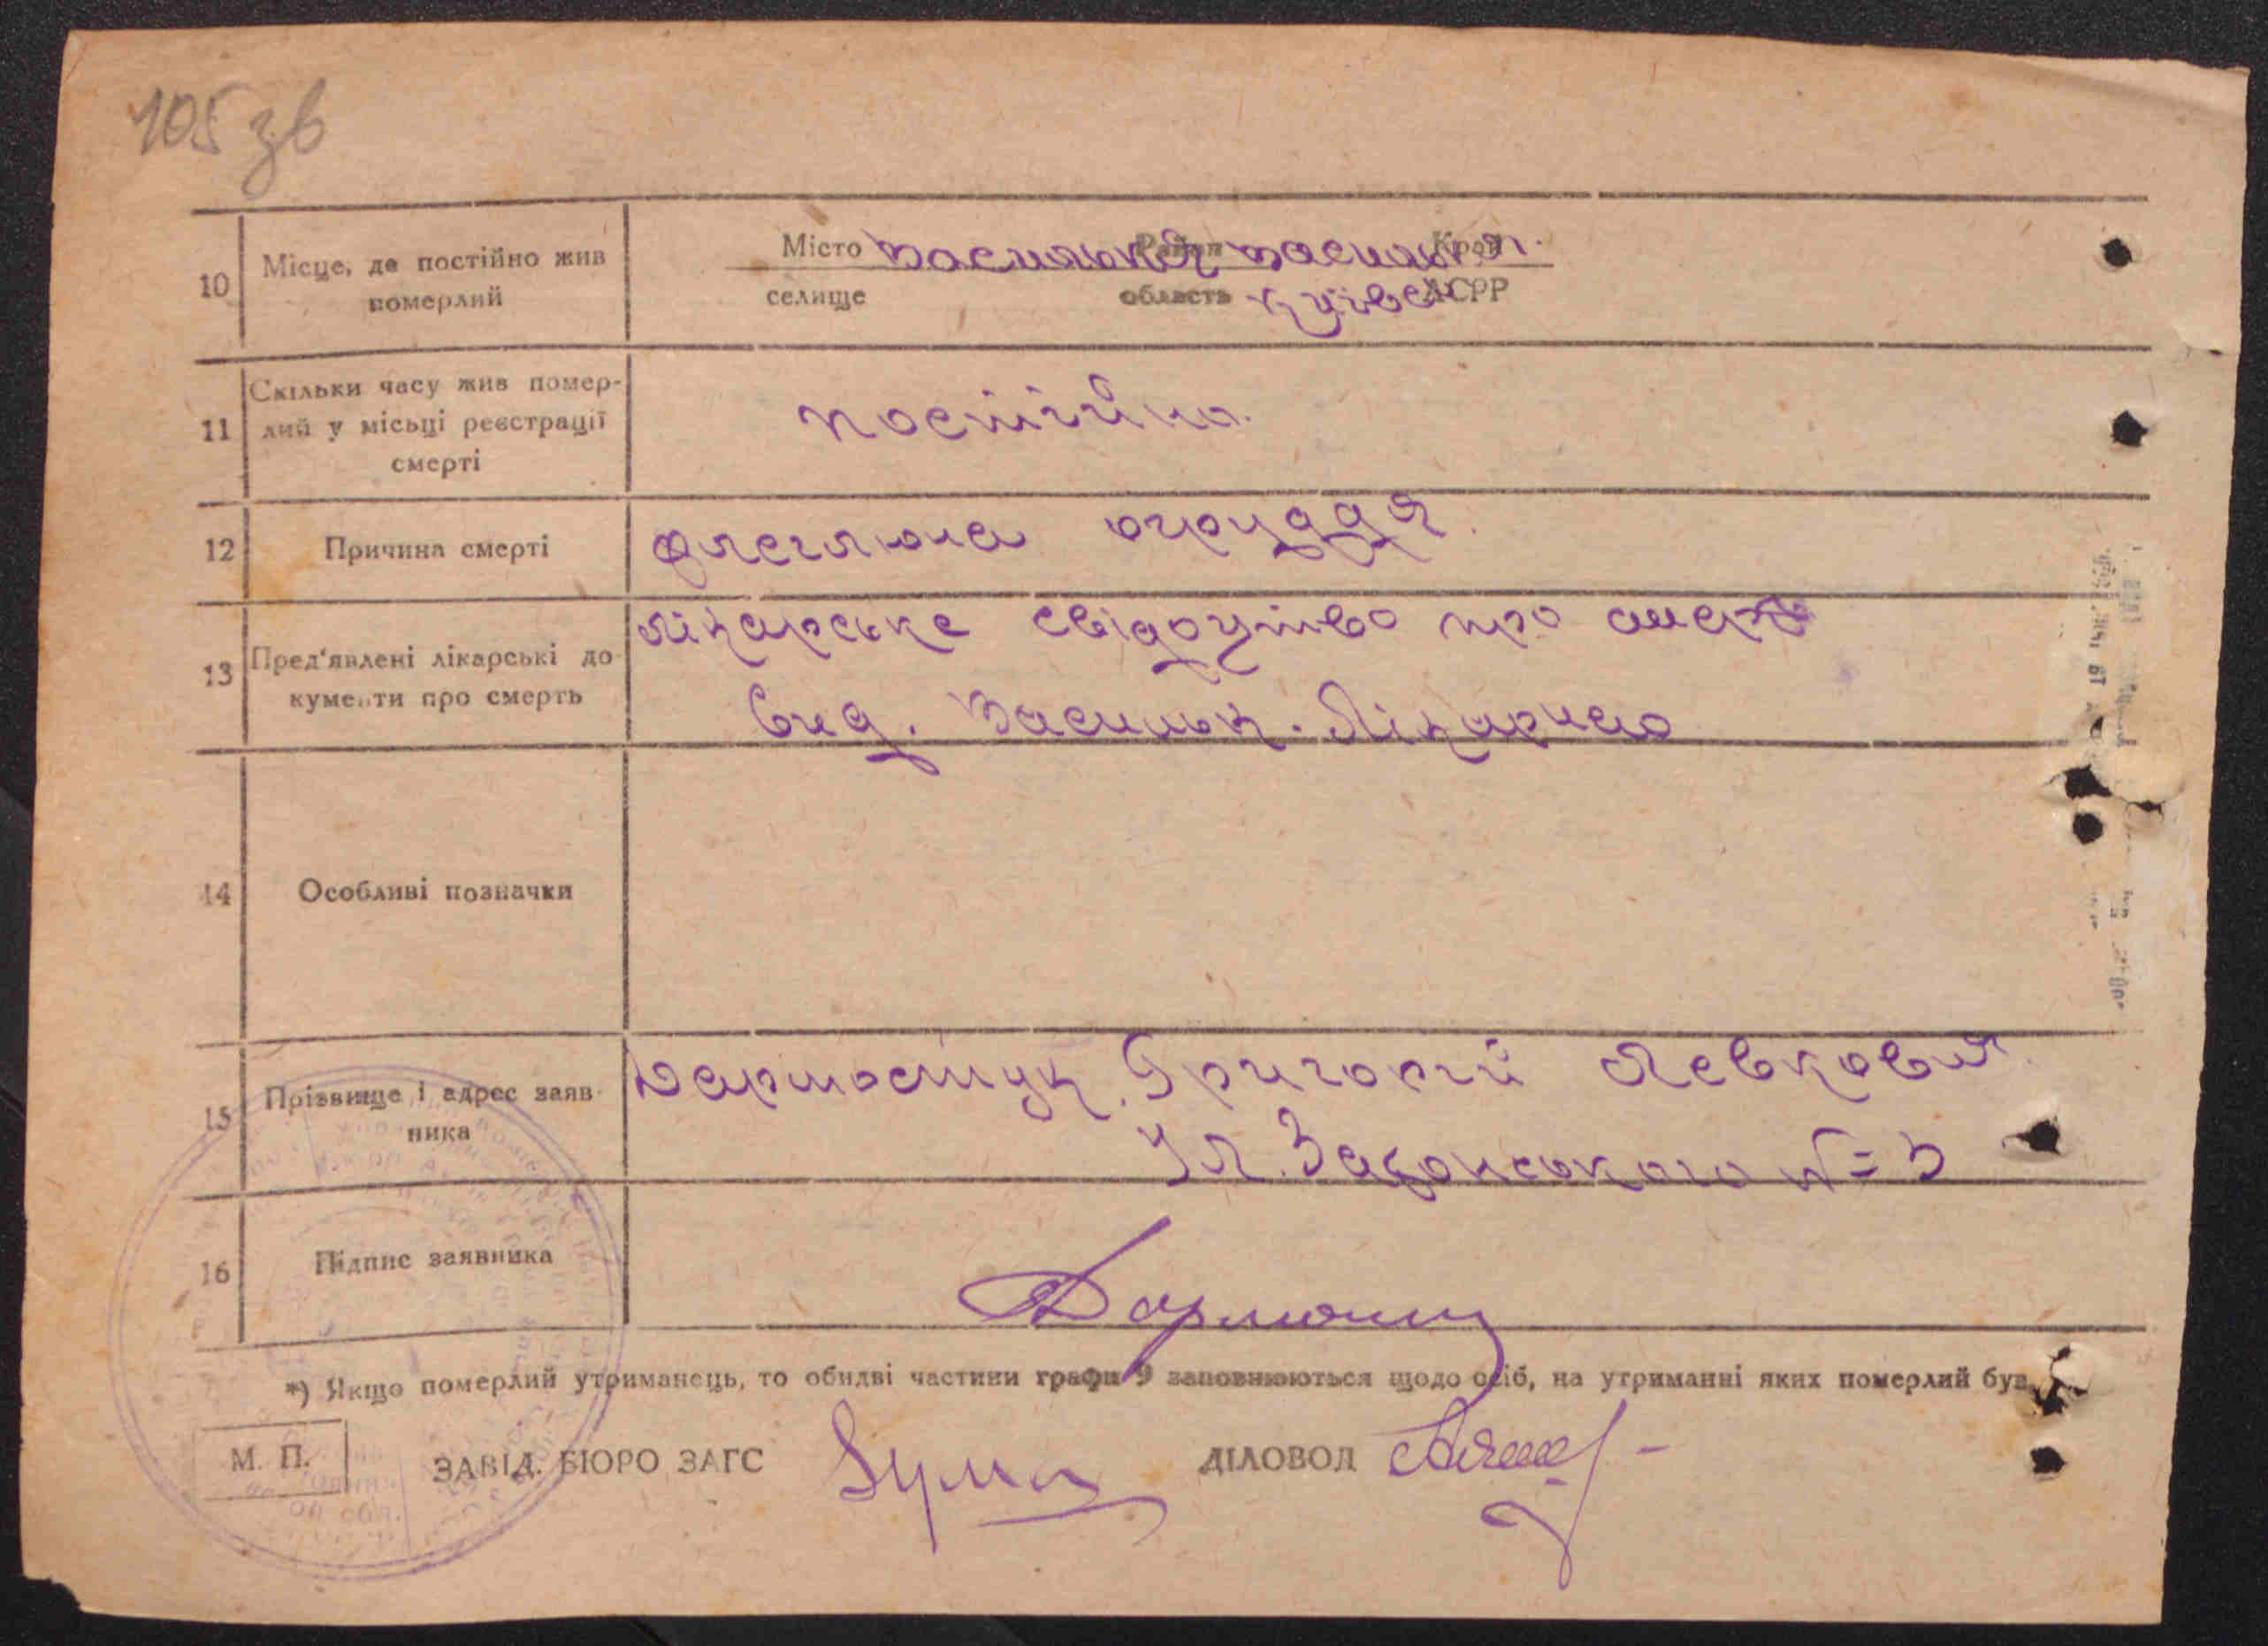 105 зв
10
Місце, де постійно жив
померлий
Місто Васильків Район Васильк Край
селище область Київськ АСРР
11
Скільки часу жив помер-
лий у місьці реєстрації
смерті
постійно.
12
Причина смерті
флегмона груддя.
13
Пред'явлені лікарські до-
кументи про смерть
лікарське свідоцтво про смерть
вид. Васильк. Лікарнею
14
Особливі позначки
15
Прізвище і адрес заяв-
ника
Дармостук Григорій Левкович
Ул. № 5
16
Підпис заявника
*) Якщо померлий утриманець, то обидві частини графи 9 заповнюються щодо осіб, на утриманні яких померлий був.
М. П.
ЗАВІД. БЮРО ЗАГС
ДІЛОВОД